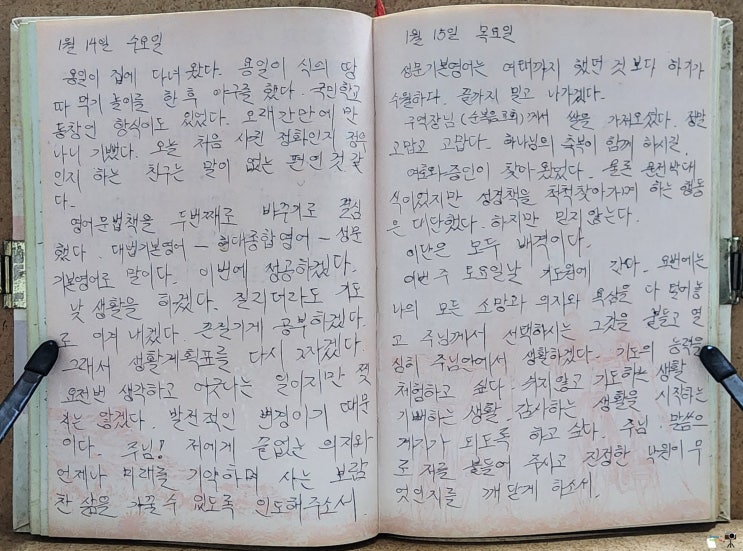 1월 14일 수요일
용일이 집에 다녀 왔다. 용일이 식의 땅
따 먹기 놀이를 한 후 야구를 했다. 국민학교
동창인 향식이도 있었다. 오래간만에 만
나니 기뻤다. 오늘 처음 사귄 정화인지 정우
인지 하는 친구는 말이 없는 편인 것 같
다.
영어문법책을 두번째로 바꾸기로 결심
했다. 대법기본영어 - 현대종합영어 - 성문
기본영어로 말이다. 이번에 성공하겠다.
낮 생활을 하겠다. 질리더라도 기도
로 이겨 내겠다. 끈질기게 공부하겠다.
그래서 생활계획표를 다시 짜겠다.
요전번 생각하고 어긋나는 일이지만
않겠다. 발전적인 변경이기 때문
이다. 주님! 저에게 끝없는 의지와
언제나 미래를 기약하며 사는 보람
찬 삶을 가꿀 수 있도록 인도해주소서.
1월 15일 목요일
성문기본영어는 여태까지 했던 것보다 하기가
수월하다. 끝까지 밀고 나가겠다.
구역장님 (순복음교회)께서 쌀을 가져오셨다. 정말
고맙고 고맙다. 하나님의 축복이 함께 하시길.
여호와증인이 찾아 왔었다. 물론 문전박대
식이었지만 성경책을 척척찾아가며 하는 행동
은 대단했다. 하지만 믿지 않는다.
이단은 모두 배격이다.
이번 주 토요일날 기도원에 간다. 요번에는
나의 모든 소망과 의지와 욕심을 다 털어놓
고 주님께서 선택하시는 그것을 붙들고 열
심히 주님안에서 생활하겠다. 기도의 능력을
체험하고 싶다. 쉬지않고 기도하는 생활
기뻐하는 생활. 감사하는 생활을 시작하는
계기가 되도록 하고 싶다. 주님. 말씀으
로 저를 붙들어 주시고 진정한 낙원이 무
엇인지를 깨닫게 하소서.